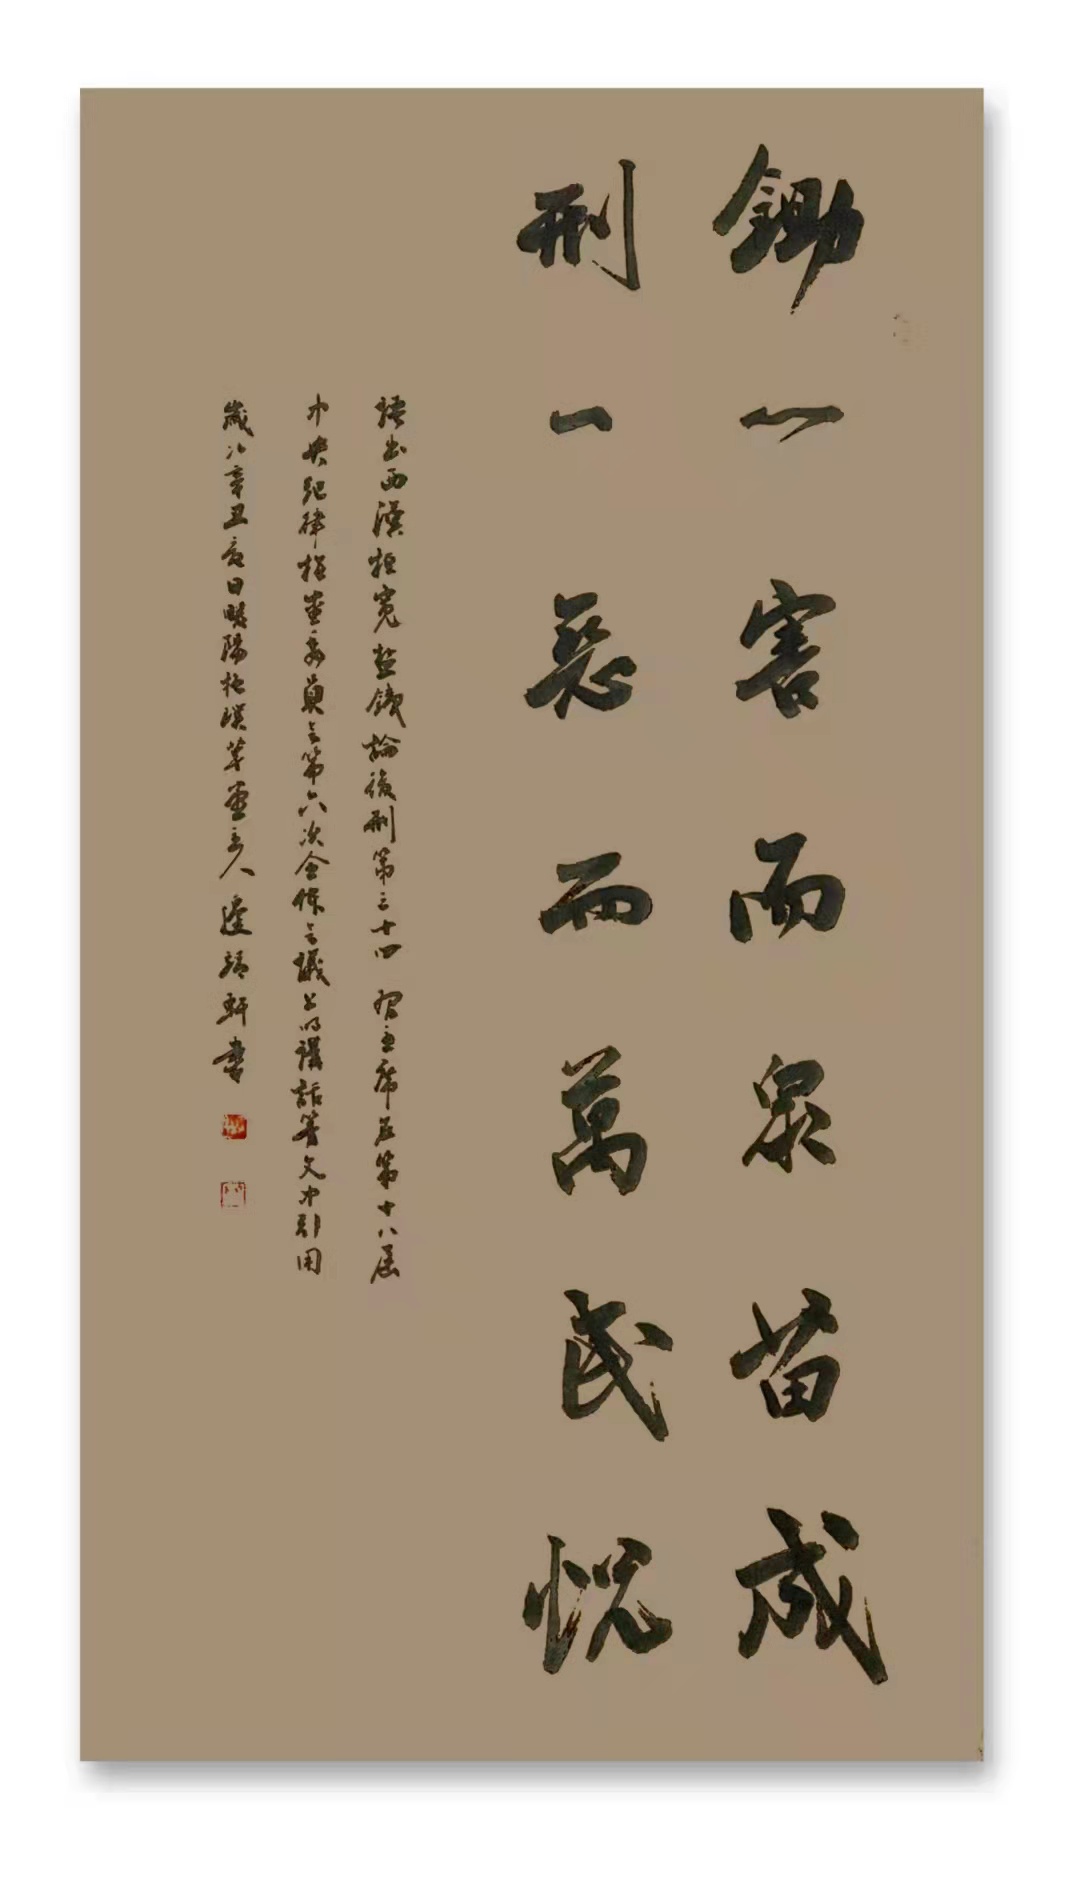 鋤一害而衆苗成
刑一惡而萬民悅
語出西漢桓寬鹽鐵論後刑第三十四 習主席在第十八届
中央紀律檢查委員会第六次全體会議上的講話等文中引用
歲次辛丑夏日暖陽於璞草堂主人蓬軒書